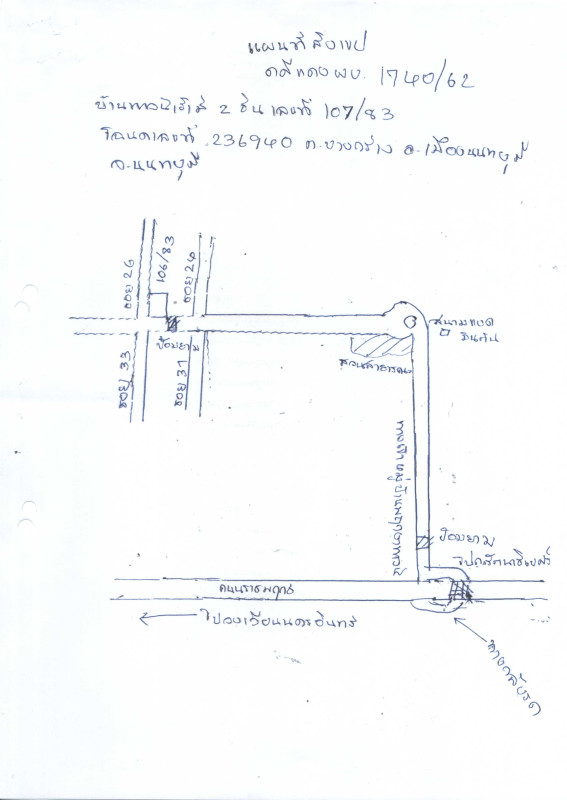 แผนที่สังเขป
คดีแดง ผบ. 1740/62
บ้านทาวน์เฮ้าส์ 2 ชั้น เลขที่ 107/83
โฉนดเลขที่ 236940 ต.บางกร่าง อ.เมืองนนทบุรี
จ.นนทบุรี
ซอย 26
106/83
ซอย 24
ป้อมยาม
ซอย 33
ซอย 31
สวนสาธารณะ
ทางเข้าหมู่บ้าน
ป้อมยาม
ถนนราชพฤกษ์
ไปวงเวียนนครอินทร์
ทางกลับรถ